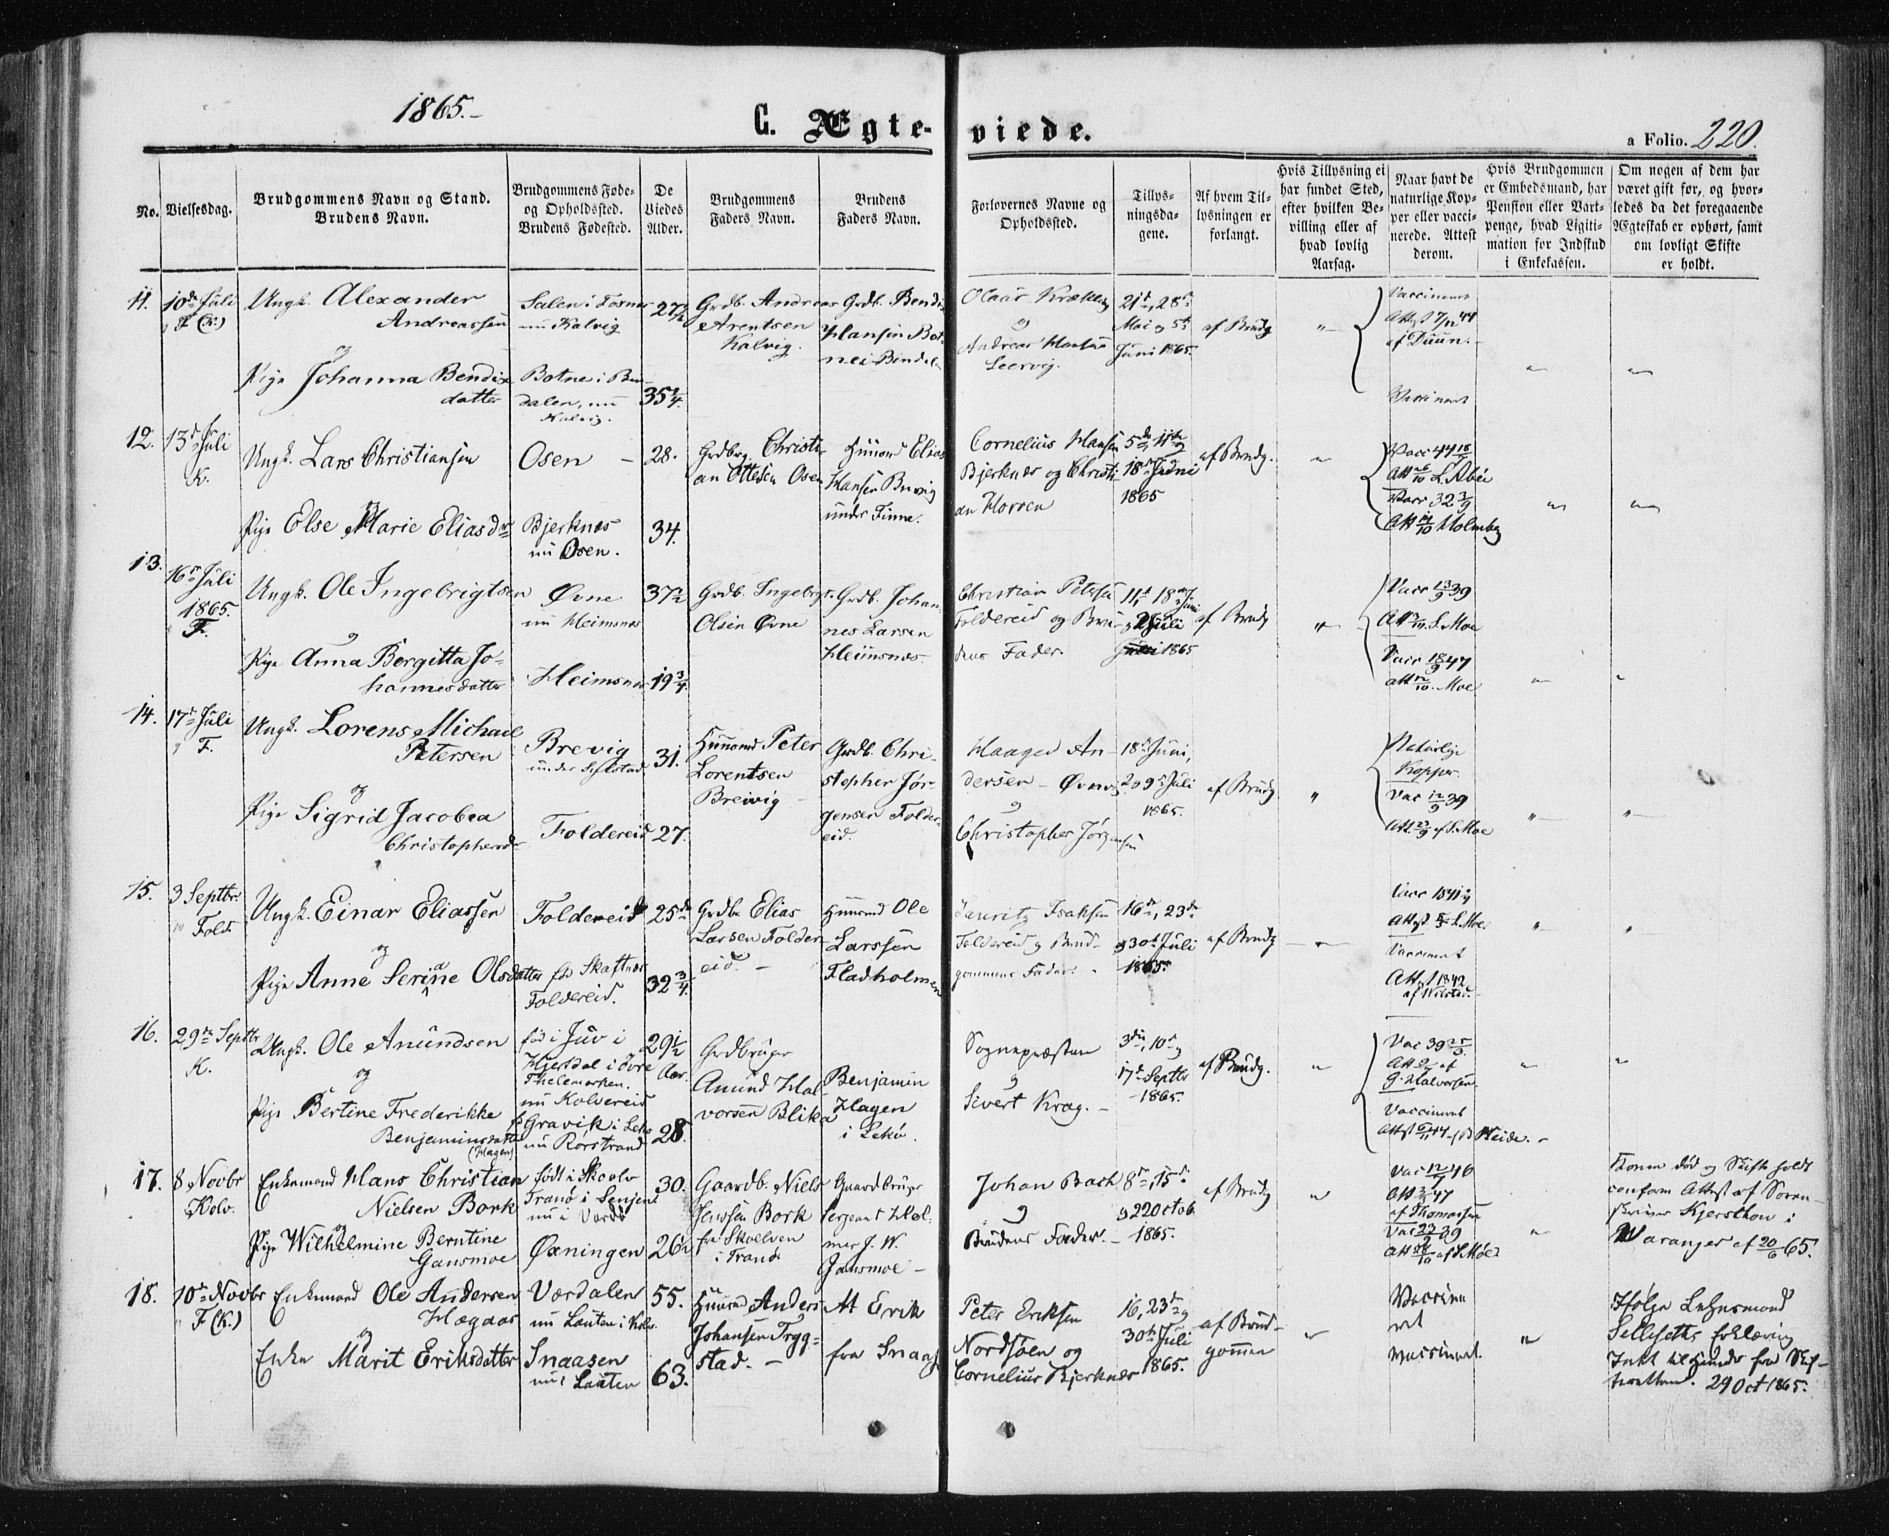 1865.-
C. Ægte-viede.
a Folio. 220.
No.
Vielsesdag.
Brudgommens Navn og Stand.
Brudens Navn.
Brudgommens Føde-
og Opholdssted.
Brudens Fødested.
De
Viedes
Alder.
Brudgommens
Faders Navn.
Brudens
Faders Navn.
Forlovernes Navne og
Opholdssted.
Tillys-
ningsda-
gene.
Af hvem Til-
lysningen er
forlangt.
Hvis Tillysning ei
har fundet Sted,
efter hvilken Be-
villing eller af
hvad lovlig
Aarsag.
Naar havt de
naturlige Kop-
per eller vacci-
nerede. Attest
derom.
Hvis Brudgommen
er Embedsmand, har
Pension eller Vart-
penge, hvad Ligiti-
mation for Indskud
i Enkekassen.
Om nogen af dem har
været gift før, og hvor-
ledes da det foregaaende
Ægteskab er ophørt, samt
om lovligt Skifte
er holdt.
11.
10de Juli
F (K.)
Ungk. Alexander
Andreassen
og
Pige Johanna Bendix
datter
Salen i Fosnes
nu Kalvig
Botne i Bin-
dalen, nu
Kalvig.
27½
35¼.
Grdb. Andreas
Arentsen
Kalvig.
Grdb. Bendix
Hansen Bot-
nei Bindalen
og
Andreas Hansen
Leervig.
21de, 28de
Mai og 5te
Juni 1865.
af Brudg
"
Vaccineret
Attest 7/12 44
af Duun.-
Vaccineret
12.
13de Juli
K.
Ungk. Lars Christiansen
og
Pige Else Marie Eliasdr
Osen -
Bjerknæs
nu Osen.
28.
34.
Grdbrg. Christi-
an Ottesen Osen
Huusmd Elias
Hansen Brevig
under Finne.
Cornelius Hansen
Bjerknæs og Christi-
an Horsen
5de 11te og
18de Juni
1865
af Brudg.
"
Holmberg
13.
16de Juli
1865.
F.
Ungk. Ole Ingebrigtsen
og
Pige Anna Bergitta Jo-
hannesdatter
Øvne
nu Heimsnæs
Heimsnæs
37½
19¾.
Grdb. Ingebrigt
Olsen Øvne
Grdb. Johan-
nes Larsen
Heimsnæs.
Christian Petersen
Foldereid og Bru-
dens Fader.
11te 18de Juni
og 2 Juli
1865
af Brudg
"
Vacc 13/9 39
Att. S. Moe
Vacc 18/9 47
att 12/10. Moe
14.
17de Juli
F.
Ungk. Lorens Michael
Petersen
og
Pige Sigrid Jacobea
Christophersdr
Brevig
Foldereid
31.
27.
Huusmd Peter
Lorentsen
Breivig -
Grdb. Chri-
stopher Jør-
gensen Folder-
eid.
Haagen An-
dersen - Øvne
og
Christopher Jørgensen
18de Juni,
2 og 9de Juli
1865.
af Brudg
"
Naturlige
Kopper.
Vac 12/9 39
Att. 23/9 af S. Moe
15.
3 Septbr.
Fold.
Ungk. Einar Eliassen
og
Pige Anne Serine Olsdatter
a
Foldereid
fød Skaftnæs
Foldereid.
25de
32¾.
Grdbr Elias
Larsen Folder-
eid. -
Huusmd Ole
Larssen
Fladholmen
Lauritz Isaksen
Foldereid og Brud-
gommens Fader.
16de, 23de
og 30te Juli
1865.
af Brudg
"
Attest S. Moe
Vaccineret
Att. 1842
16.
29de Septbr
K.
Ungk. Ole Amundsen
og
Pige Bertine Frederikke
Benjaminsdatter
(Hagen)
fød i Juv i
Hjertdal i Øvre
Thelemarken.
nu Kolvereid
f. Gravik i Leka
nu Rørstrand
29½
Aar.
28.
Grdbruger
Amund Hal-
vorsen Blika
Benjamin
Hagen
i Lekø.
Sognepræsten
og
Sivert Krag. -
3die, 10de og
17de Septbr
1865.
af Brudg.
"
Vac 39 25/3.
Att af
G. Halvorsen.
Vaccineret
Heide. -
17.
8 Novbr
Kolv.
Enkemand Hans Christian
Nielsen Bork
og
Pige Wilhelmine Berntine
Gansmoe
født i Skoelv
Tranø i Senjen
nu i Vardø
Øxningen
30.
26½
Gaardb. Niels
Jenssen Bork
fra Skoelven
i Tranø
Gaardbruger
Sergeant Hal-
mer J. W.
Gansmoe -
Johan Bach
og
Brudens Fader. -
8de, 15de
og 22 Octob.
1865.
af Brudg
"
Vac 12/7 46
Att 47
af Thomassen
Vac 23/9 39
Att 26/10 af S. Moe
Konen død og Skifte holdt
conform Attest af Soren-
skriver Kjerschow i
Waranger af 20/6 65.
18.
10de Novbr
F (K.)
Enkemand Ole Andersen
Hægaas
og
Enke Marit Eriksdatter
Værdalen
nu Lauten i Kolv.
Snaasen
nu Lauten
55.
63.
Huusmd Anders
Johansen Tryg-
stad. -
At Erik
fra Snaasen
Peter Eriksen
Nordsøen og
Cornelius Bjerknæs
16, 23de og
30te Juli
1865.
af Brud-
gommen
"
Vaccine-
ret
vaccineret.
Ifølge Lehnsmand
Sellesæths Erklæring
Intet til Hinder fra Skif-
teretten. 29 Oct 1865.